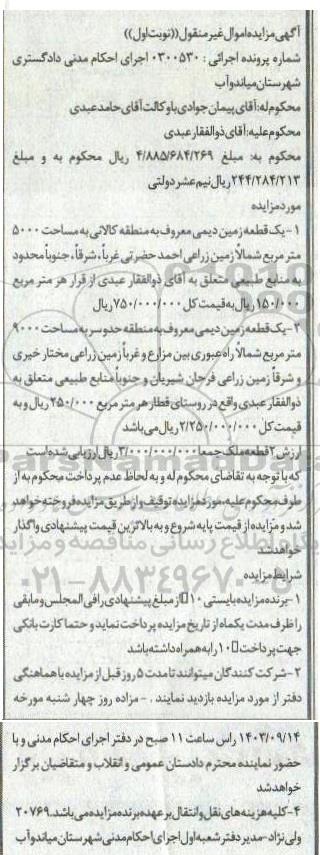 آگهی مزایده اموال غیر منقول ((نوبت اول))
شماره پرونده اجرائی : ۰۳۰۰۵۳۰ اجرای احکام مدنی دادگستری
شهرستان میاندوآب
محکوم له: آقای پیمان جوادی با وکالت آقای حامد عبدی
محکوم علیه: آقای ذوالفقار عبدی
محکوم به: مبلغ ۴/۸۸۵/۶۸۴/۲۶۹ ریال محکوم به و مبلغ
۲۴۴/۲۸۴/۲۱۳ ریال نیم عشر دولتی
مورد مزایده
۱- یک قطعه زمین دیمی معروف به منطقه کالانی به مساحت ۵۰۰۰
متر مربع شمالاً زمین زراعی احمد حضرتی غرباً، شرقاً، جنوباً محدود
به منابع طبیعی متعلق به آقای ذوالفقار عبدی از قرار هر متر مربع
۱۵۰/۰۰۰ ریال به قیمت کل ۷۵۰/۰۰۰/۰۰۰ ریال
۲- یک قطعه زمین دیمی معروف به منطقه حدوسر به مساحت ۹۰۰۰
متر مربع شمالاً راه عبوری بین مزارع و غرباً زمین زراعی مختار خیری
و شرقاً زمین زراعی فرحان شیریان و جنوباً منابع طبیعی متعلق به
ذوالفقار عبدی واقع در روستای قطار هر متر مربع ۲۵۰/۰۰۰ ریال و به
قیمت کل ۲/۲۵۰/۰۰۰/۰۰۰ ریال می باشد
ارزش ۲ قطعه ملک جمعا ۳/۰۰۰/۰۰۰/۰۰۰ ریال ارزیابی شده است
که با توجه به تقاضای محکوم له و به لحاظ عدم پرداخت محکوم به از
طرف محکوم علیه، مورد مزایده توقیف و از طریق مزایده فروخته خواهد
شد و مزایده از قیمت پایه شروع و به بالاترین قیمت پیشنهادی واگذار
خواهد شد
شرایط مزایده
۱- برنده مزایده بایستی ۱۰٪ از مبلغ پیشنهادی را فی المجلس و مابقی
را ظرف مدت یکماه از تاریخ مزایده پرداخت نماید و حتما کارت بانکی
جهت پرداخت ۱۰٪ را به همراه داشته باشد
۲- شرکت کنندگان میتوانند تا مدت ۵ روز قبل از مزایده با هماهنگی
دفتر از مورد مزایده بازدید نمایند . - مزاده روز چهار شنبه مورخه
۱۴۰۳/۰۹/۱۴ راس ساعت ۱۱ صبح در دفتر اجرای احکام مدنی و با
حضور نماینده محترم دادستان عمومی و انقلاب و متقاضیان برگزار
خواهد شد
۴- کلیه هزینه های نقل و انتقال بر عهده برنده مزایده می باشد. ۲۰۷۶۹
ولی نژاد - مدیر دفتر شعبه اول اجرای احکام مدنی شهرستان میاندوآب